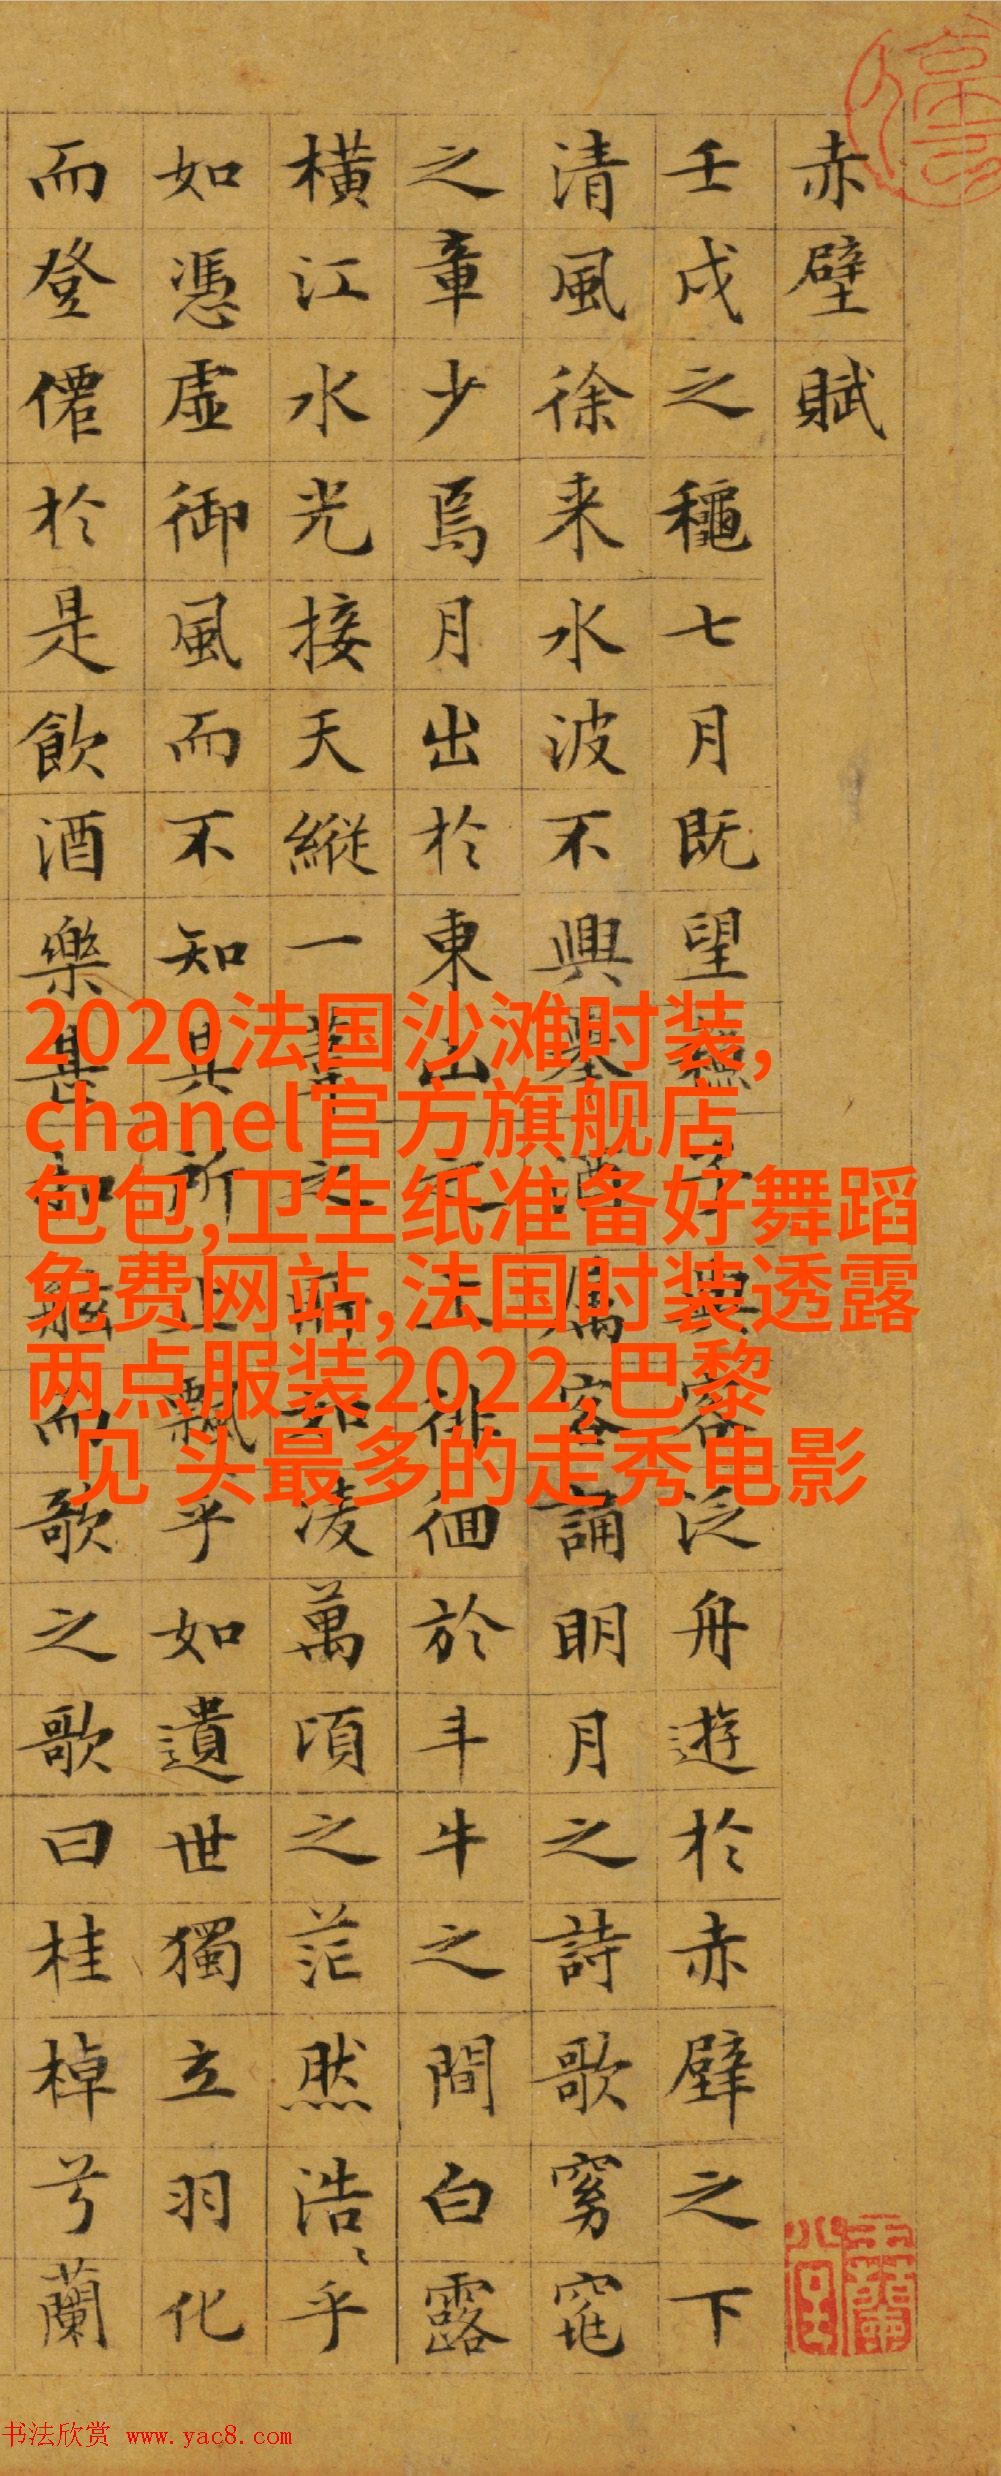 赤壁賦
壬戌之穐七月既望蘇子與客泛舟遊於赤壁之下
清風徐来水波不興舉酒属客誦明月之詩歌窈窕
之章少焉月出於東山之上徘徊於斗牛之間白露
橫江水光接天縱一葦之所如凌萬頃之茫然浩〻乎
如憑虛御風而不知其所止飄乎如遺世獨立羽化
而登僊於是飲酒樂甚扣舷而歌之歌曰桂棹兮蘭
2020法国沙滩时装,
chanel官方旗舰店
包包,卫生纸准备好舞蹈
免费网站,法国时装透露
两点服装2022,巴黎
见 头最多的走秀电影
书法欣赏 www.yac8.com